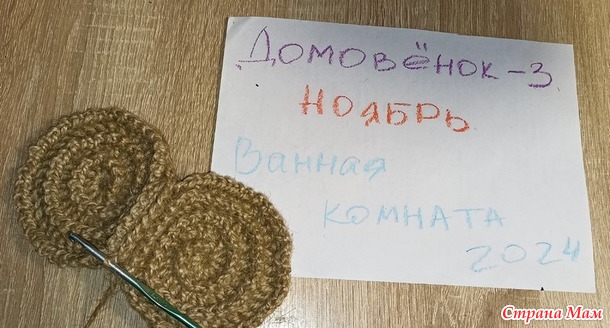 Домовёнок-3
Ноябрь
Ванная
комната
2024
Страна Мам